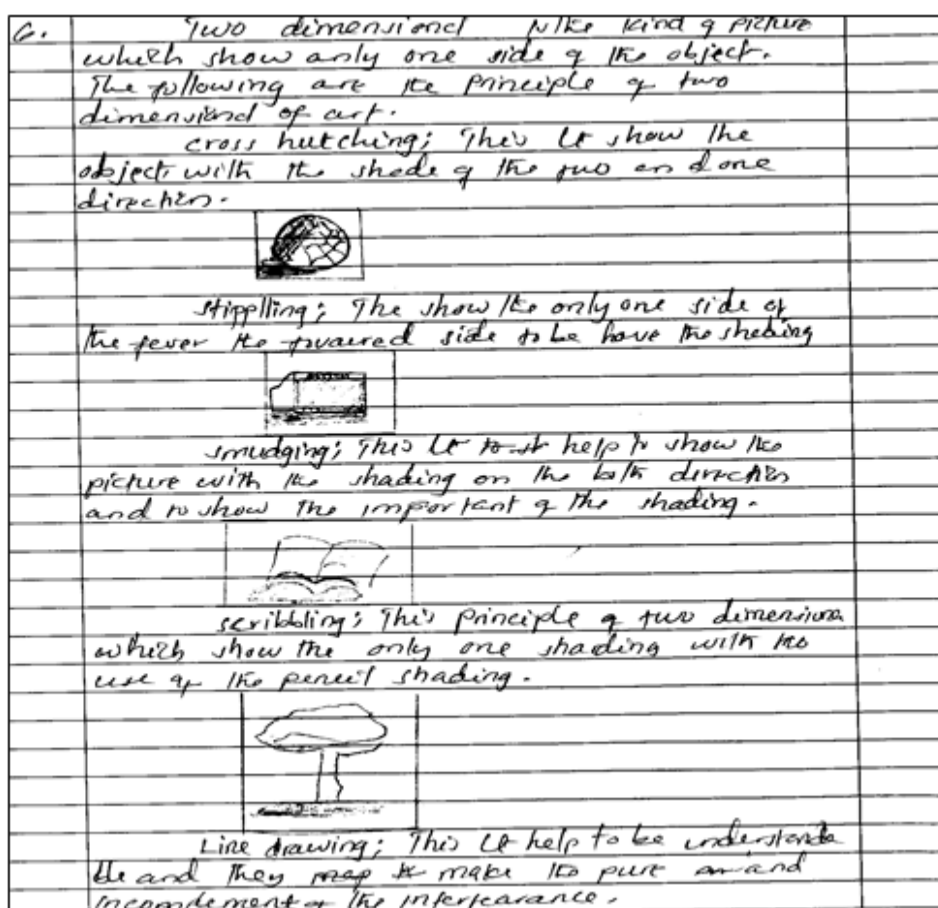 6. Two dimensional is the kind of picture
which show only one side of the object.
The following are the principle of two
dimensional of art.
cross hutching; This is show the
object with the shade of the two and one
direction.
stipplling; The show the only one side of
the the side to be have the sheading
smudging; This is help to show the
picture with the shading on the both direction
and to show the important of the shading.
scribbling; This principle of two dimensiona
which show the only one shading with the
use of the pencil shading.
Line drawing; This is help to be understanda
ble and they make the pure and
of the